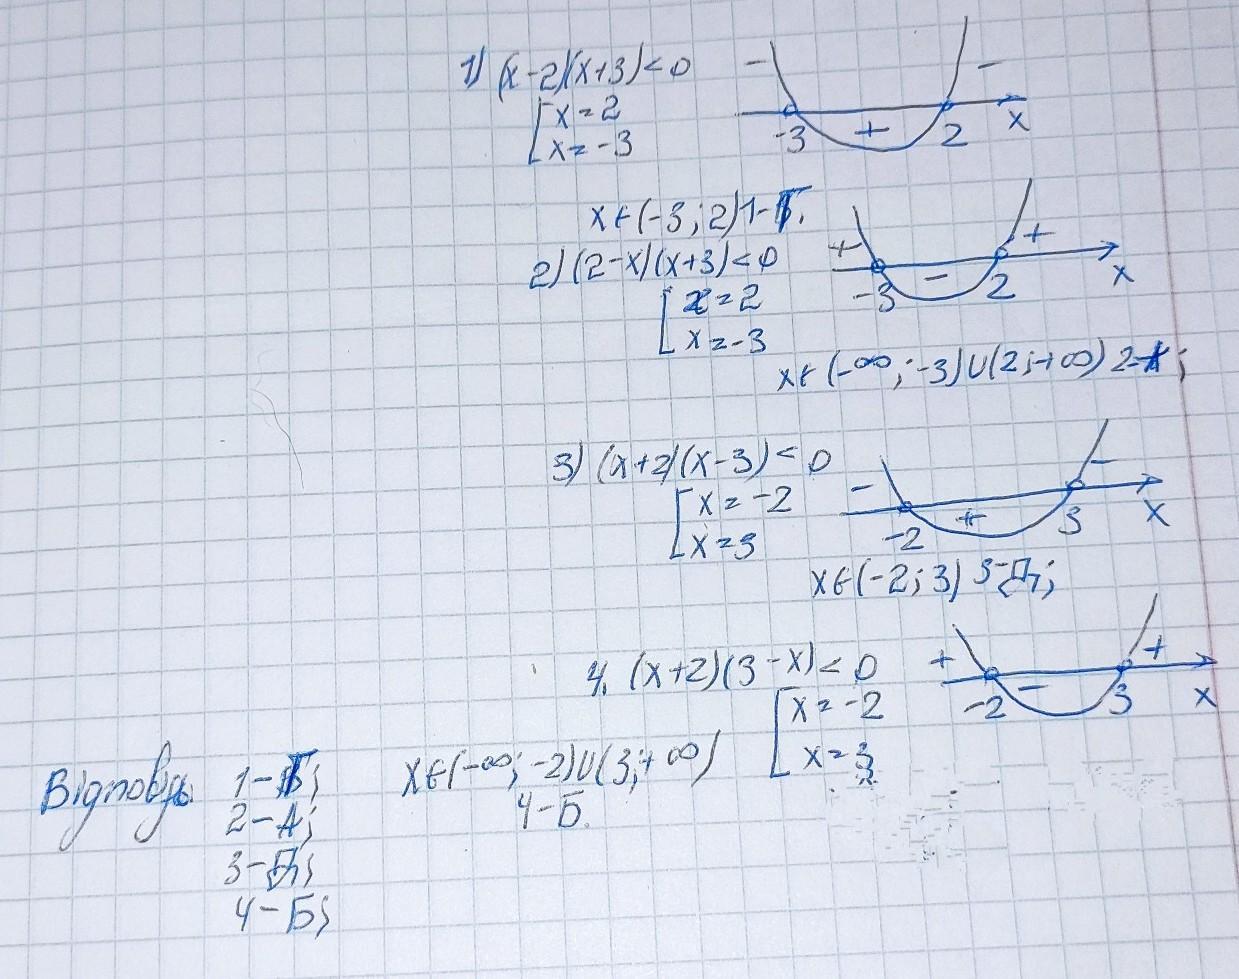 1) (x-2)(x+3)<0
[x=2
x=-3
- -
-3 + 2 x
x∈(-3; 2) 1-
2) (2-x)(x+3)<0
[x=2
x=-3
+ +
-3 - 2 x
x∈(-∞; -3)∪(2;+∞) 2-А;
3) (x+2)(x-3)<0
[x=-2
x=3
- -
-2 + 3 x
x∈(-2; 3) 3-Д;
4. (x+2)(3-x)<0
[x=-2
x=3
+ +
-2 - 3 x
x∈(-∞; -2)∪(3;+∞)
4-Б.
Відповідь
1-
2-А;
3-Д;
4-Б;